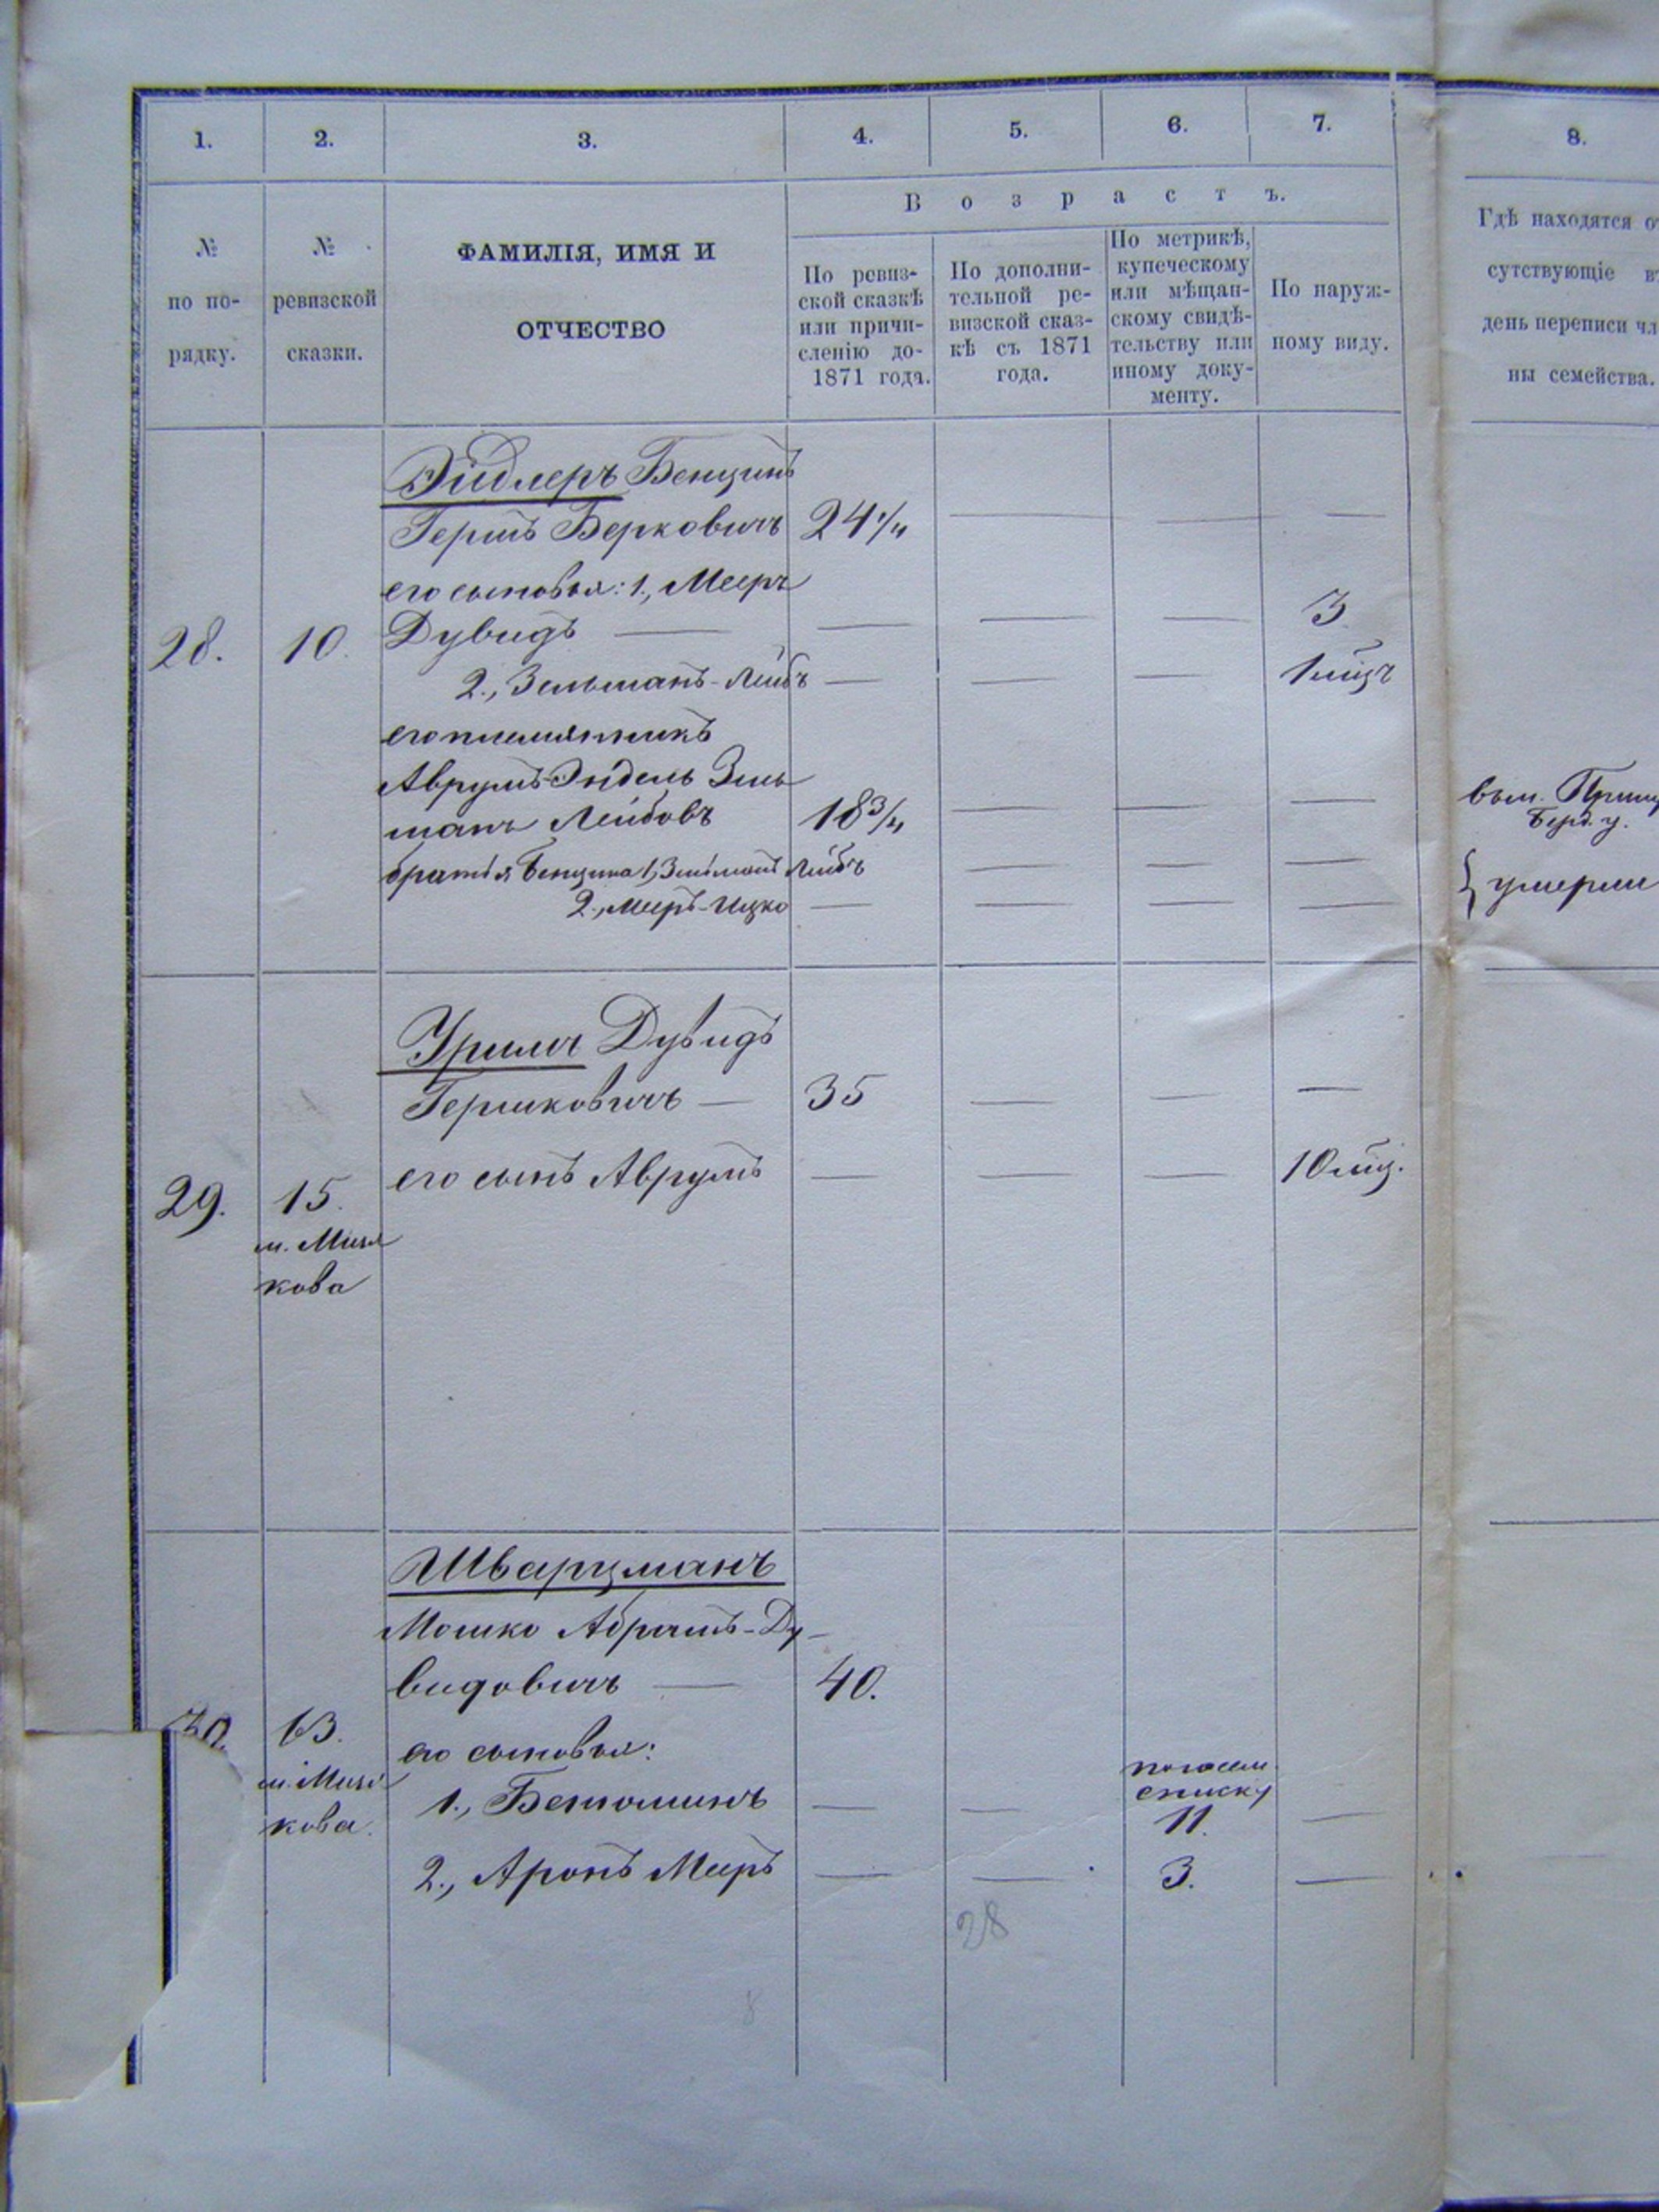 1. 2. 3. 4. 5. 6. 7. 8.
Возрастъ.
№
по по-
рядку.
№
ревизской
сказки.
ФАМИЛІЯ, ИМЯ И
ОТЧЕСТВО
По ревиз-
ской сказкѣ
или причи-
сленію до-
1871 года.
По дополни-
тельной ре-
визской сказ-
кѣ съ 1871
года.
По метрикѣ,
купеческому
или мѣщан-
скому свидѣ-
тельству или
иному доку-
менту.
По наруж-
ному виду.
Гдѣ находятся от
сутствующіе въ
день переписи чл
ны семейства.
28. 10.
Эйдлеръ Бенцинъ
Гершъ Берковичъ 24 1/4 — — —
его сыновья: 1., Мееръ
Дувидъ — — — — 3
2., Зельманъ-Лейбъ — — — 1 мѣц
его племянникъ
Аврумъ-Эйдель Зель
манъ Лейбовъ 18 3/4 — — —
братья Бенциna 1, Зельманъ Лейбъ — — —
2., Мееръ-Ицко — — — —
вым.
Берд. у.
} умерли
29. 15.
м. Мизя
кова
Уриль Дувидъ
Гершковичъ — 35 — — —
его сынъ Аврумъ — — — 10 мѣц.
30. 63.
м. Мизя
кова.
Шварцманъ
Мошко Абрамъ-Ду-
видовичъ — 40.
его сыновья:
посем.
списку
1., Беньоминъ — — 11. —
2., Аронъ Мееръ — — 3. —
28
8